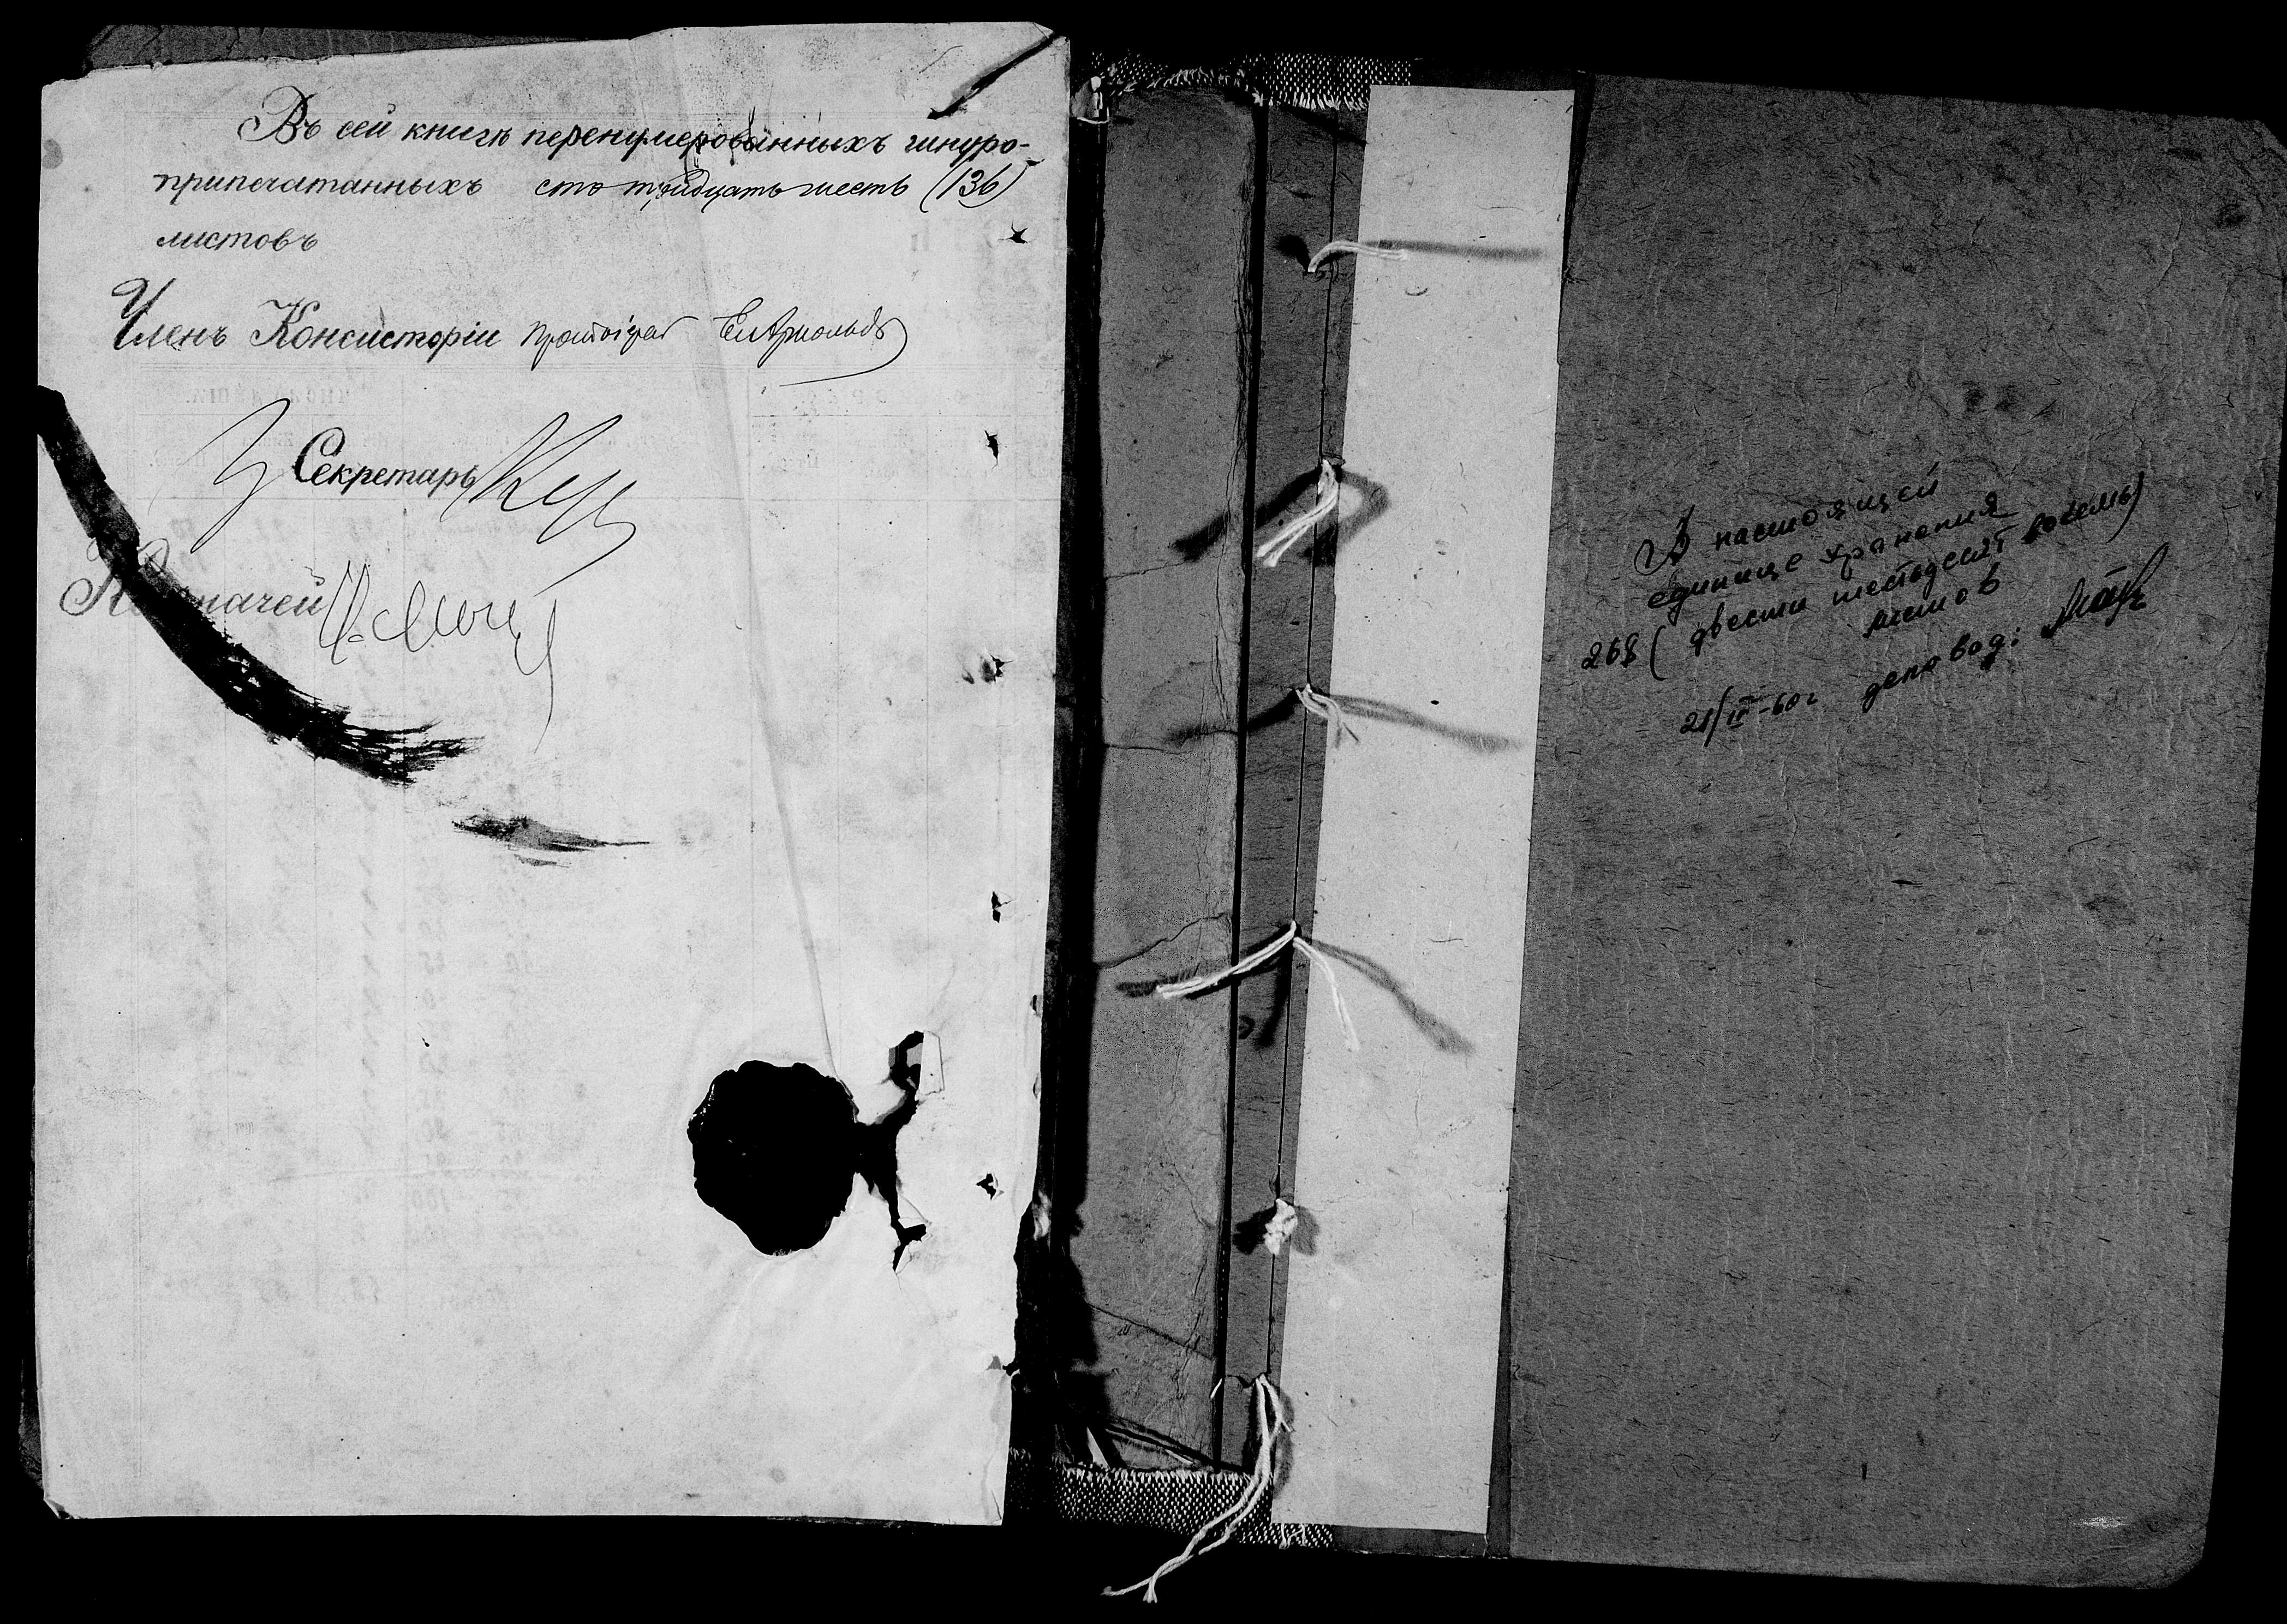 Въ сей книгѣ перенумерованныхъ шнуро-
припечатанныхъ сто тридцать шесть (136)
листовъ
Членъ Консисторіи
Секретарь
В настоящей
единице хранения
268 (двести шестьдесят восемь)
листов
21/III-60 г